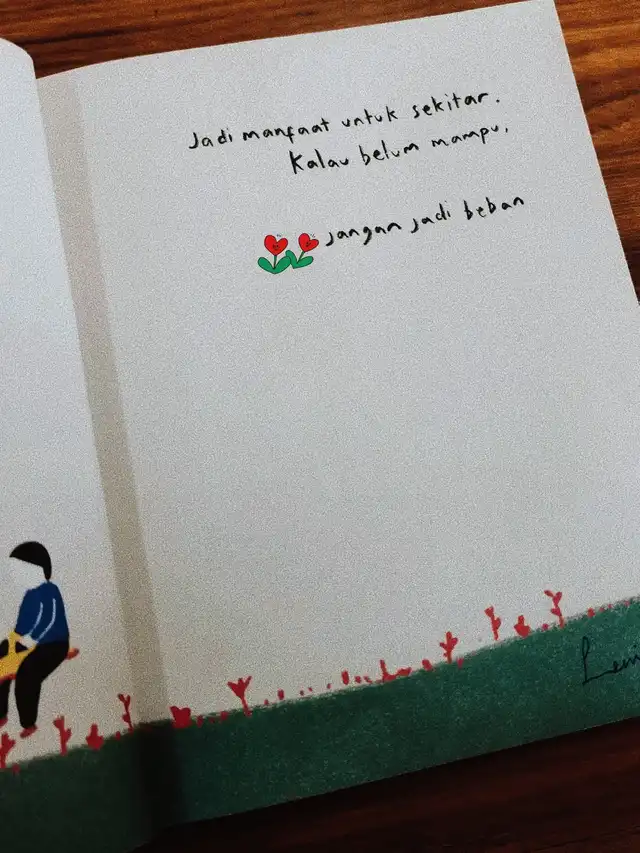 Jadi manfaat untuk sekitar.
Kalau belum mampu,
jangan jadi beban